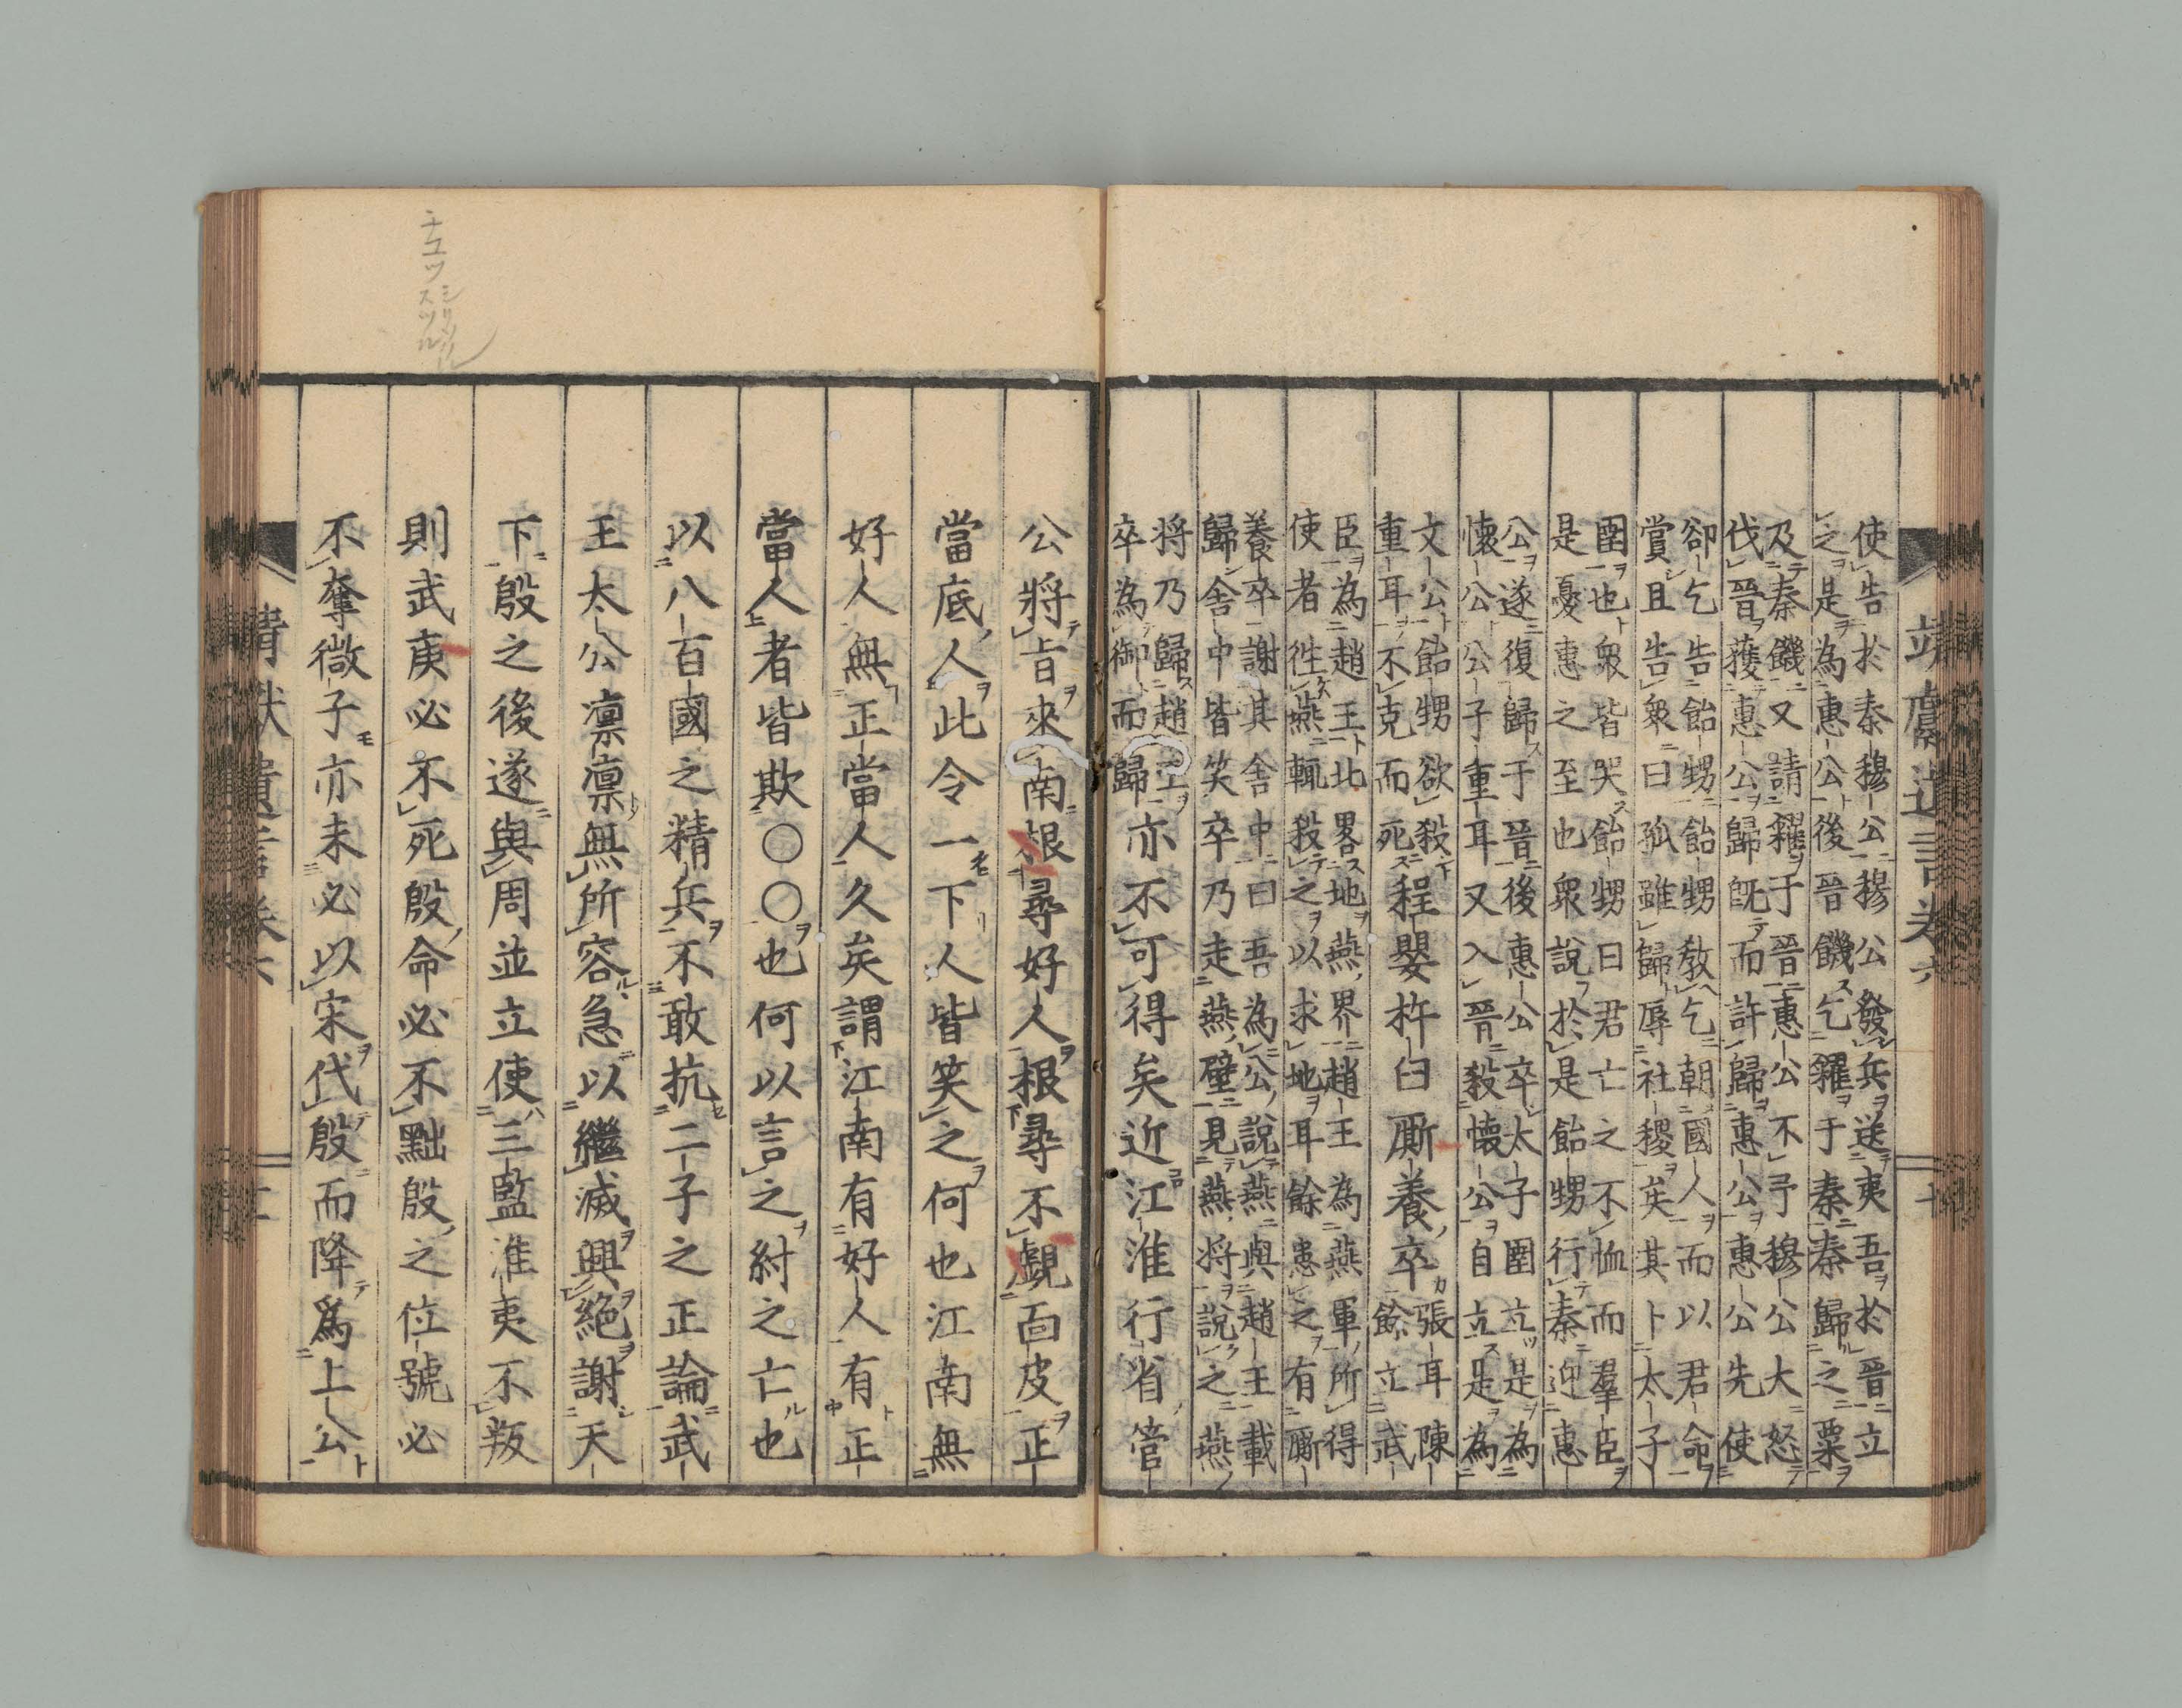 靖獻遺言卷六
使告於秦穆公穆公發兵送夷吾於晋立
之是為惠公後晋饑乞糴于秦秦歸之粟
及秦饑又請糴于晋惠公不予穆公大怒
伐晋獲惠公歸既而許歸惠公惠公先使
卻乞告飴甥飴甥教乞朝國人而以君命
賞且告衆曰孤雖歸辱社稷矣其卜太子
圉也衆皆哭飴甥曰君亡之不恤而羣臣
是憂惠之至也衆說於是飴甥行秦迎惠
公遂復歸于晋後惠公卒太子圉立是為
懷公公子重耳又入晋殺懷公自立是為
文公飴甥欲殺
重耳不克而死
程嬰杵臼厮養卒
張耳陳
餘立武
臣為趙王北畧地燕界趙王為燕軍所得
使者往燕輒殺之以求地耳餘患之有厮
養卒謝其舍中曰吾為公說燕與趙王載
歸舍中皆笑卒乃走燕壁見燕将說之燕
将乃歸趙王
卒為御而歸
亦不可得矣近江淮行省管
公將旨來南根尋好人根尋不覷面皮正
當底人此令一下人皆笑之何也江南無
好人無正當人久矣謂江南有好人有正
當人者皆欺〇〇也何以言之紂之亡也
以八百國之精兵不敢抗二子之正論武
王太公凛凛無所容急以繼滅興絕謝天
下殷之後遂與周並立使三監淮夷不叛
則武庚必不死殷命必不黜殷之位號必
不奪微子亦未必以宋代殷而降爲上公
靖獻遺言卷六